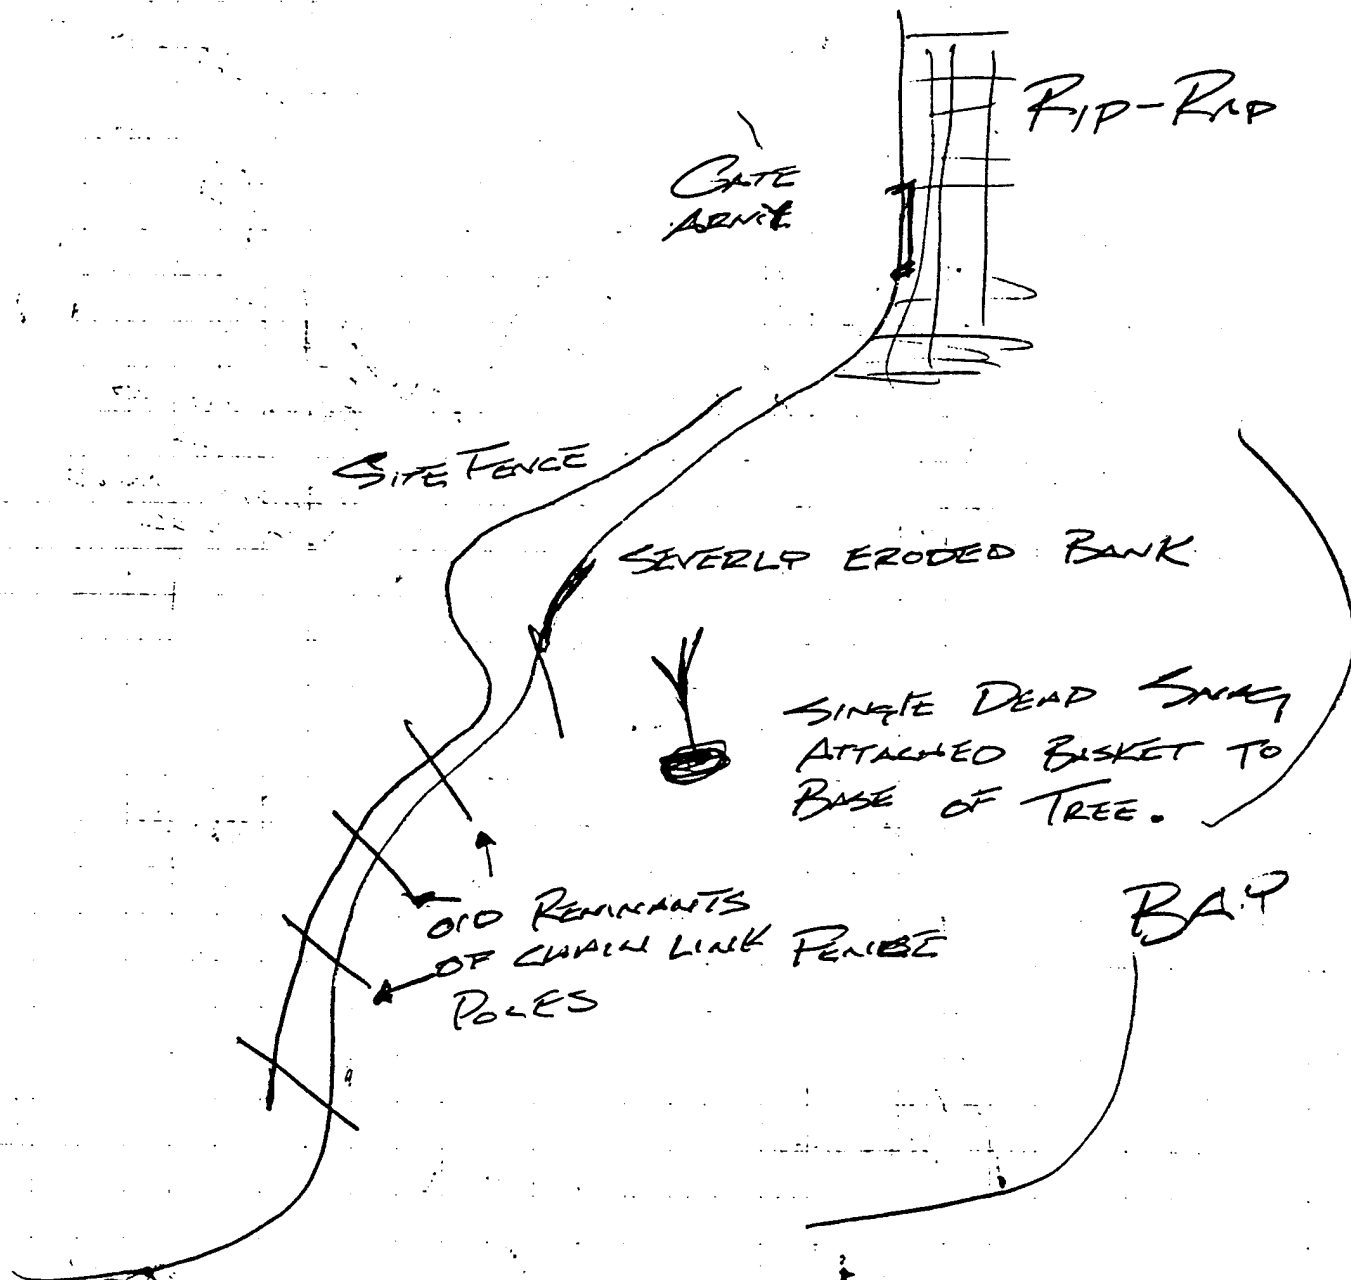 RIP-RAP
GATE
SITE FENCE
SEVERLY ERODED BANK
SINGLE DEAD SNAG
ATTACHED BASKET TO
BASE OF TREE.
BAY
OLD REMINANTS
OF CHAIN LINK FENCE
POLES